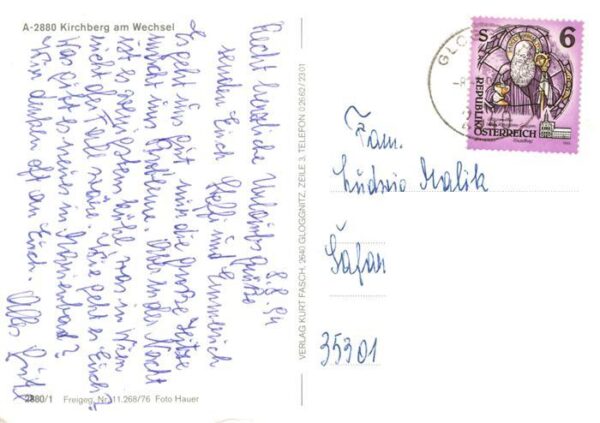 A-2880 Kirchberg am Wechsel
8.8.94
Recht herzliche Urlaubsgrüße
senden Euch Steffi und Emmerich
Es geht uns gut nur die große Hitze
macht uns Probleme. Aber in der Nacht
ist es wenigstens kühl, was in Wien
nicht der Fall wäre. Wie geht es Euch?
Was gibt es neues in Marienbad?
Wir denken oft an Euch. Alles Gute
2880/1 Freigeg. Nr. 11.268/76 Foto Hauer
VERLAG KURT FASCH, 2640 GLOGGNITZ, ZEILE 3, TELEFON 0 26 62 / 23 01
GLO
S 6
REPUBLIK
ÖSTERREICH
Fam.
Ludwig Malik
Šafan
35301